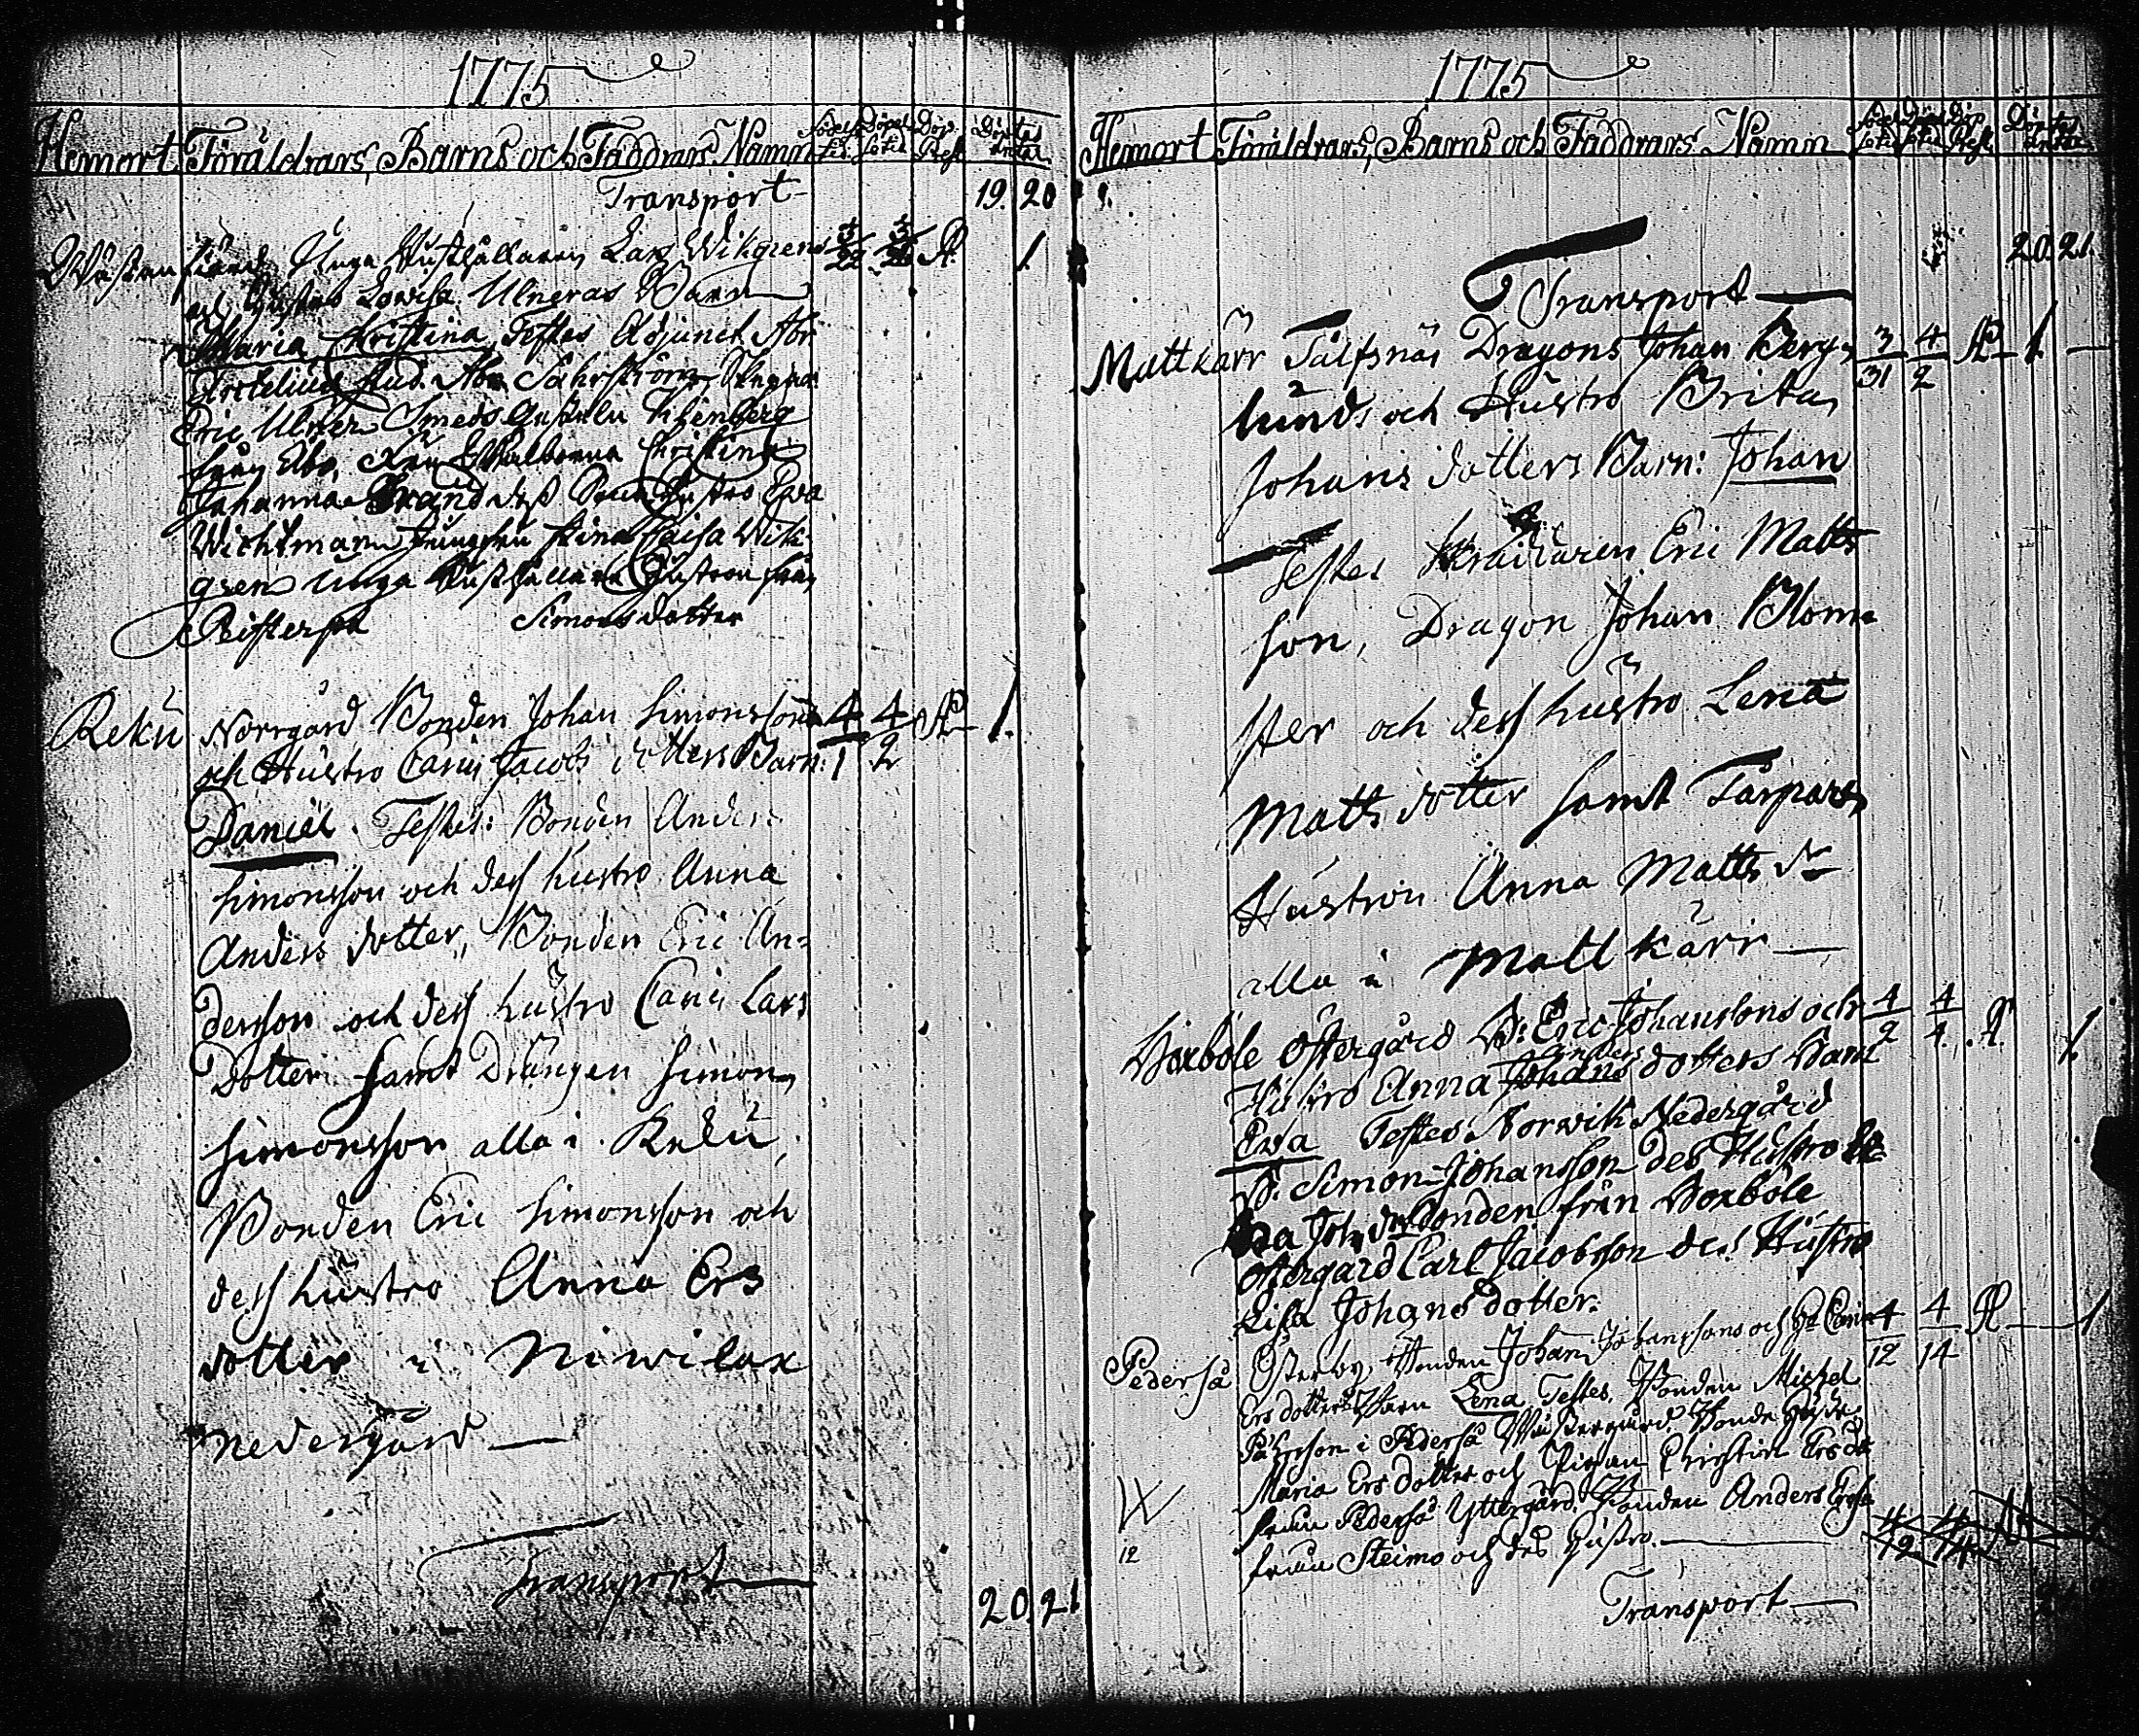 1775
Hemort Föräldrars, Barns och Faddrars Namn
Transport 19. 20
Unga Rusthållaren Lars Wikgrens
och Hustru Lowisa Ulneras Barn
Maria Christina Testes Adjunct Abr
Eric Ulner Smeds
från Åbo Christina
Johanna Brand dess Hustro Ewa
Wichtman Stina Caisa Wik-
gren Unga Rusthållare Hustron från
Simonsdotter
Reku Norrgård Bonden Johan Simonssons 4/1 4/2 1.
och Hustro Carin Jacobs dotters Barn:
Daniel. Testes: Bonden Anders
Simonsson och dess hustro Anna
Anders dotter, Bonden Eric An=
dersson och dess hustro Carin Lars
Dotter samt Drängen Simon
Simonsson alla i Reku,
Bonden Eric Simonsson och
dess hustro Anna Ers
dotter i Niwilax
nedergård
Transport 20. 21
1775
Hemort Föräldrars, Barns och Faddrars Namn
20. 21.
Transport
Mattkärr Tälfsnäs Dragons Johan Berg= 3/31 4/2 1.
lunds och Hustro Brita
Johans dotters Barn: Johan
Testes Skräddaren Eric Matts
son, Dragon Johan Blom=
ster och dess hustro Lena
Matts dotter samt Tårpare
Hustron Anna Matts dr
alla i Mattkärr
Boxböle Östergård B: Eric Johanssons och 4/2 4/4 1.
Hustro Anna Anders Johans dotters Barn
Ewa Testes: Norwik Nedergård
B. Simon Johansson des Hustro
Joh. dr Bonden från Boxböle
Östergård Carl Jacobsson des Hustro
Lisa Johans dotter.
Pederså Österby Bonden Johan Johanssons och Carin 4/12 4/14 1
Ers dotters Barn Lena Testes. Bonden Michel
i Pederså Wästergård
Maria Ers dotter och Pigan Christin Ers dr
från Pederså Yttergård. Bonden Anders
12 från Steimo och des Hustro.
4/12 4/14
Transport